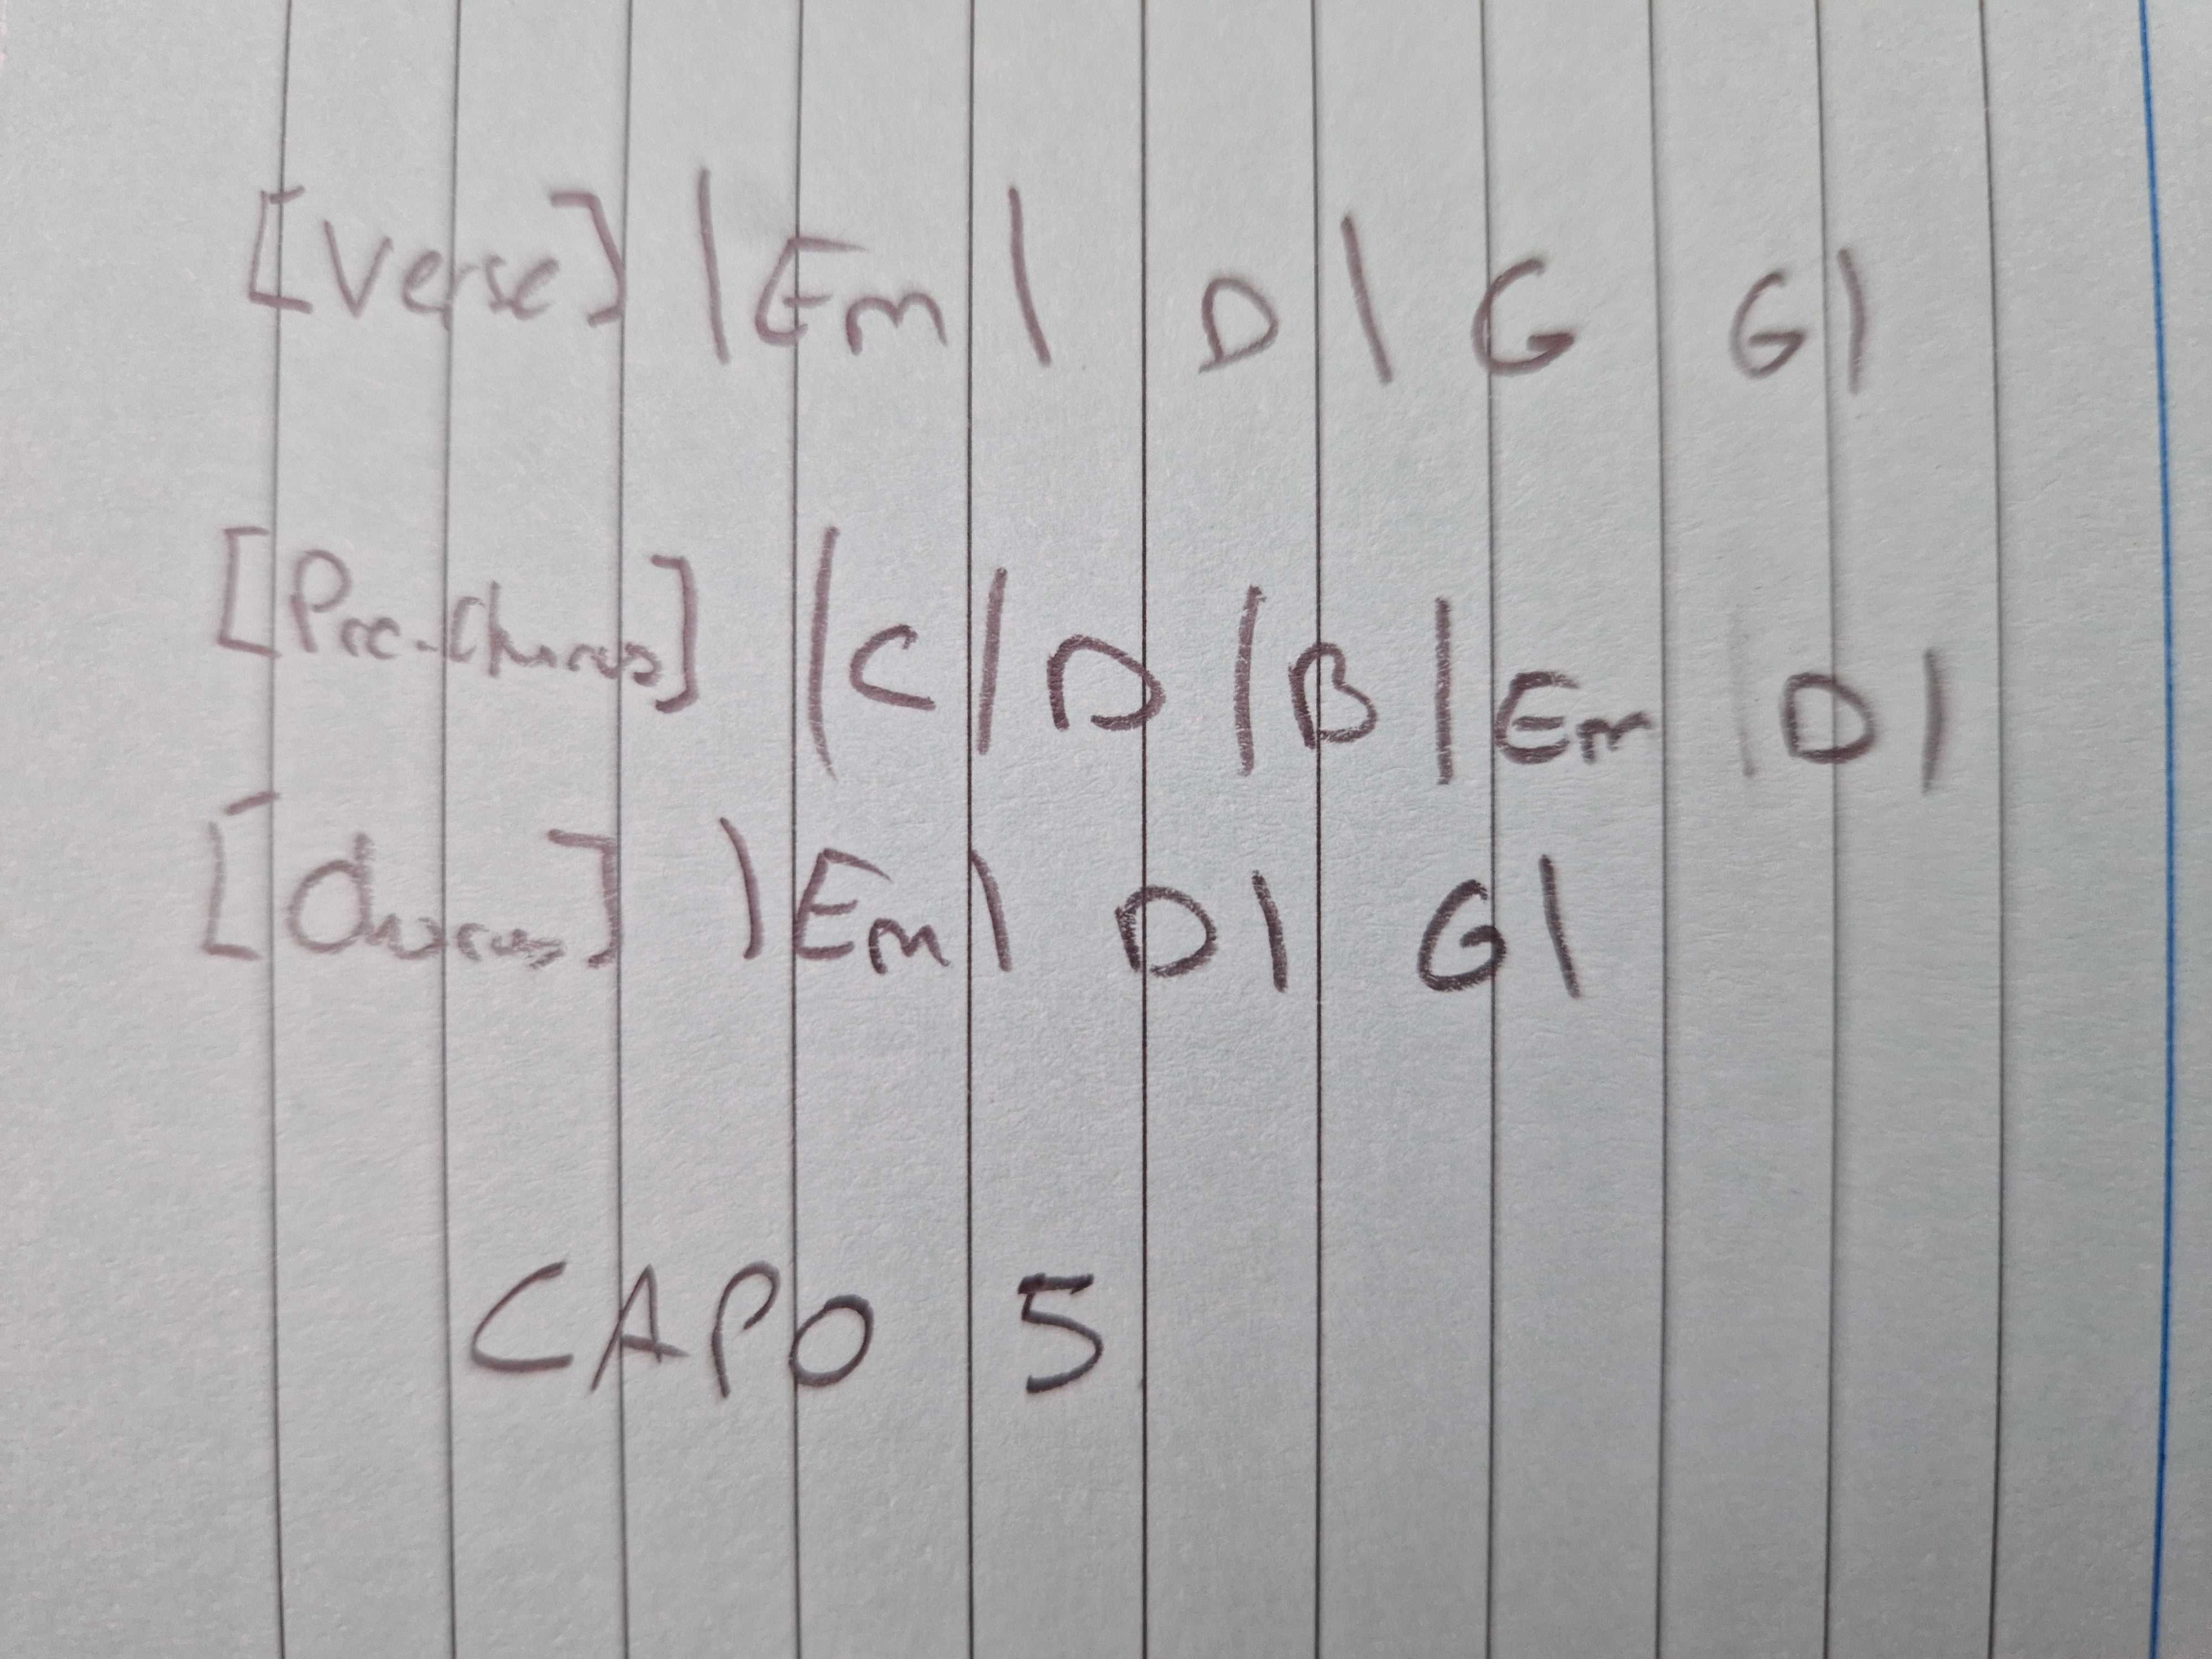 [Verse] | Em | D | G G |
[Pre-Chorus] | C | D | B | Em | D |
[Chorus] | Em | D | G |
CAPO 5